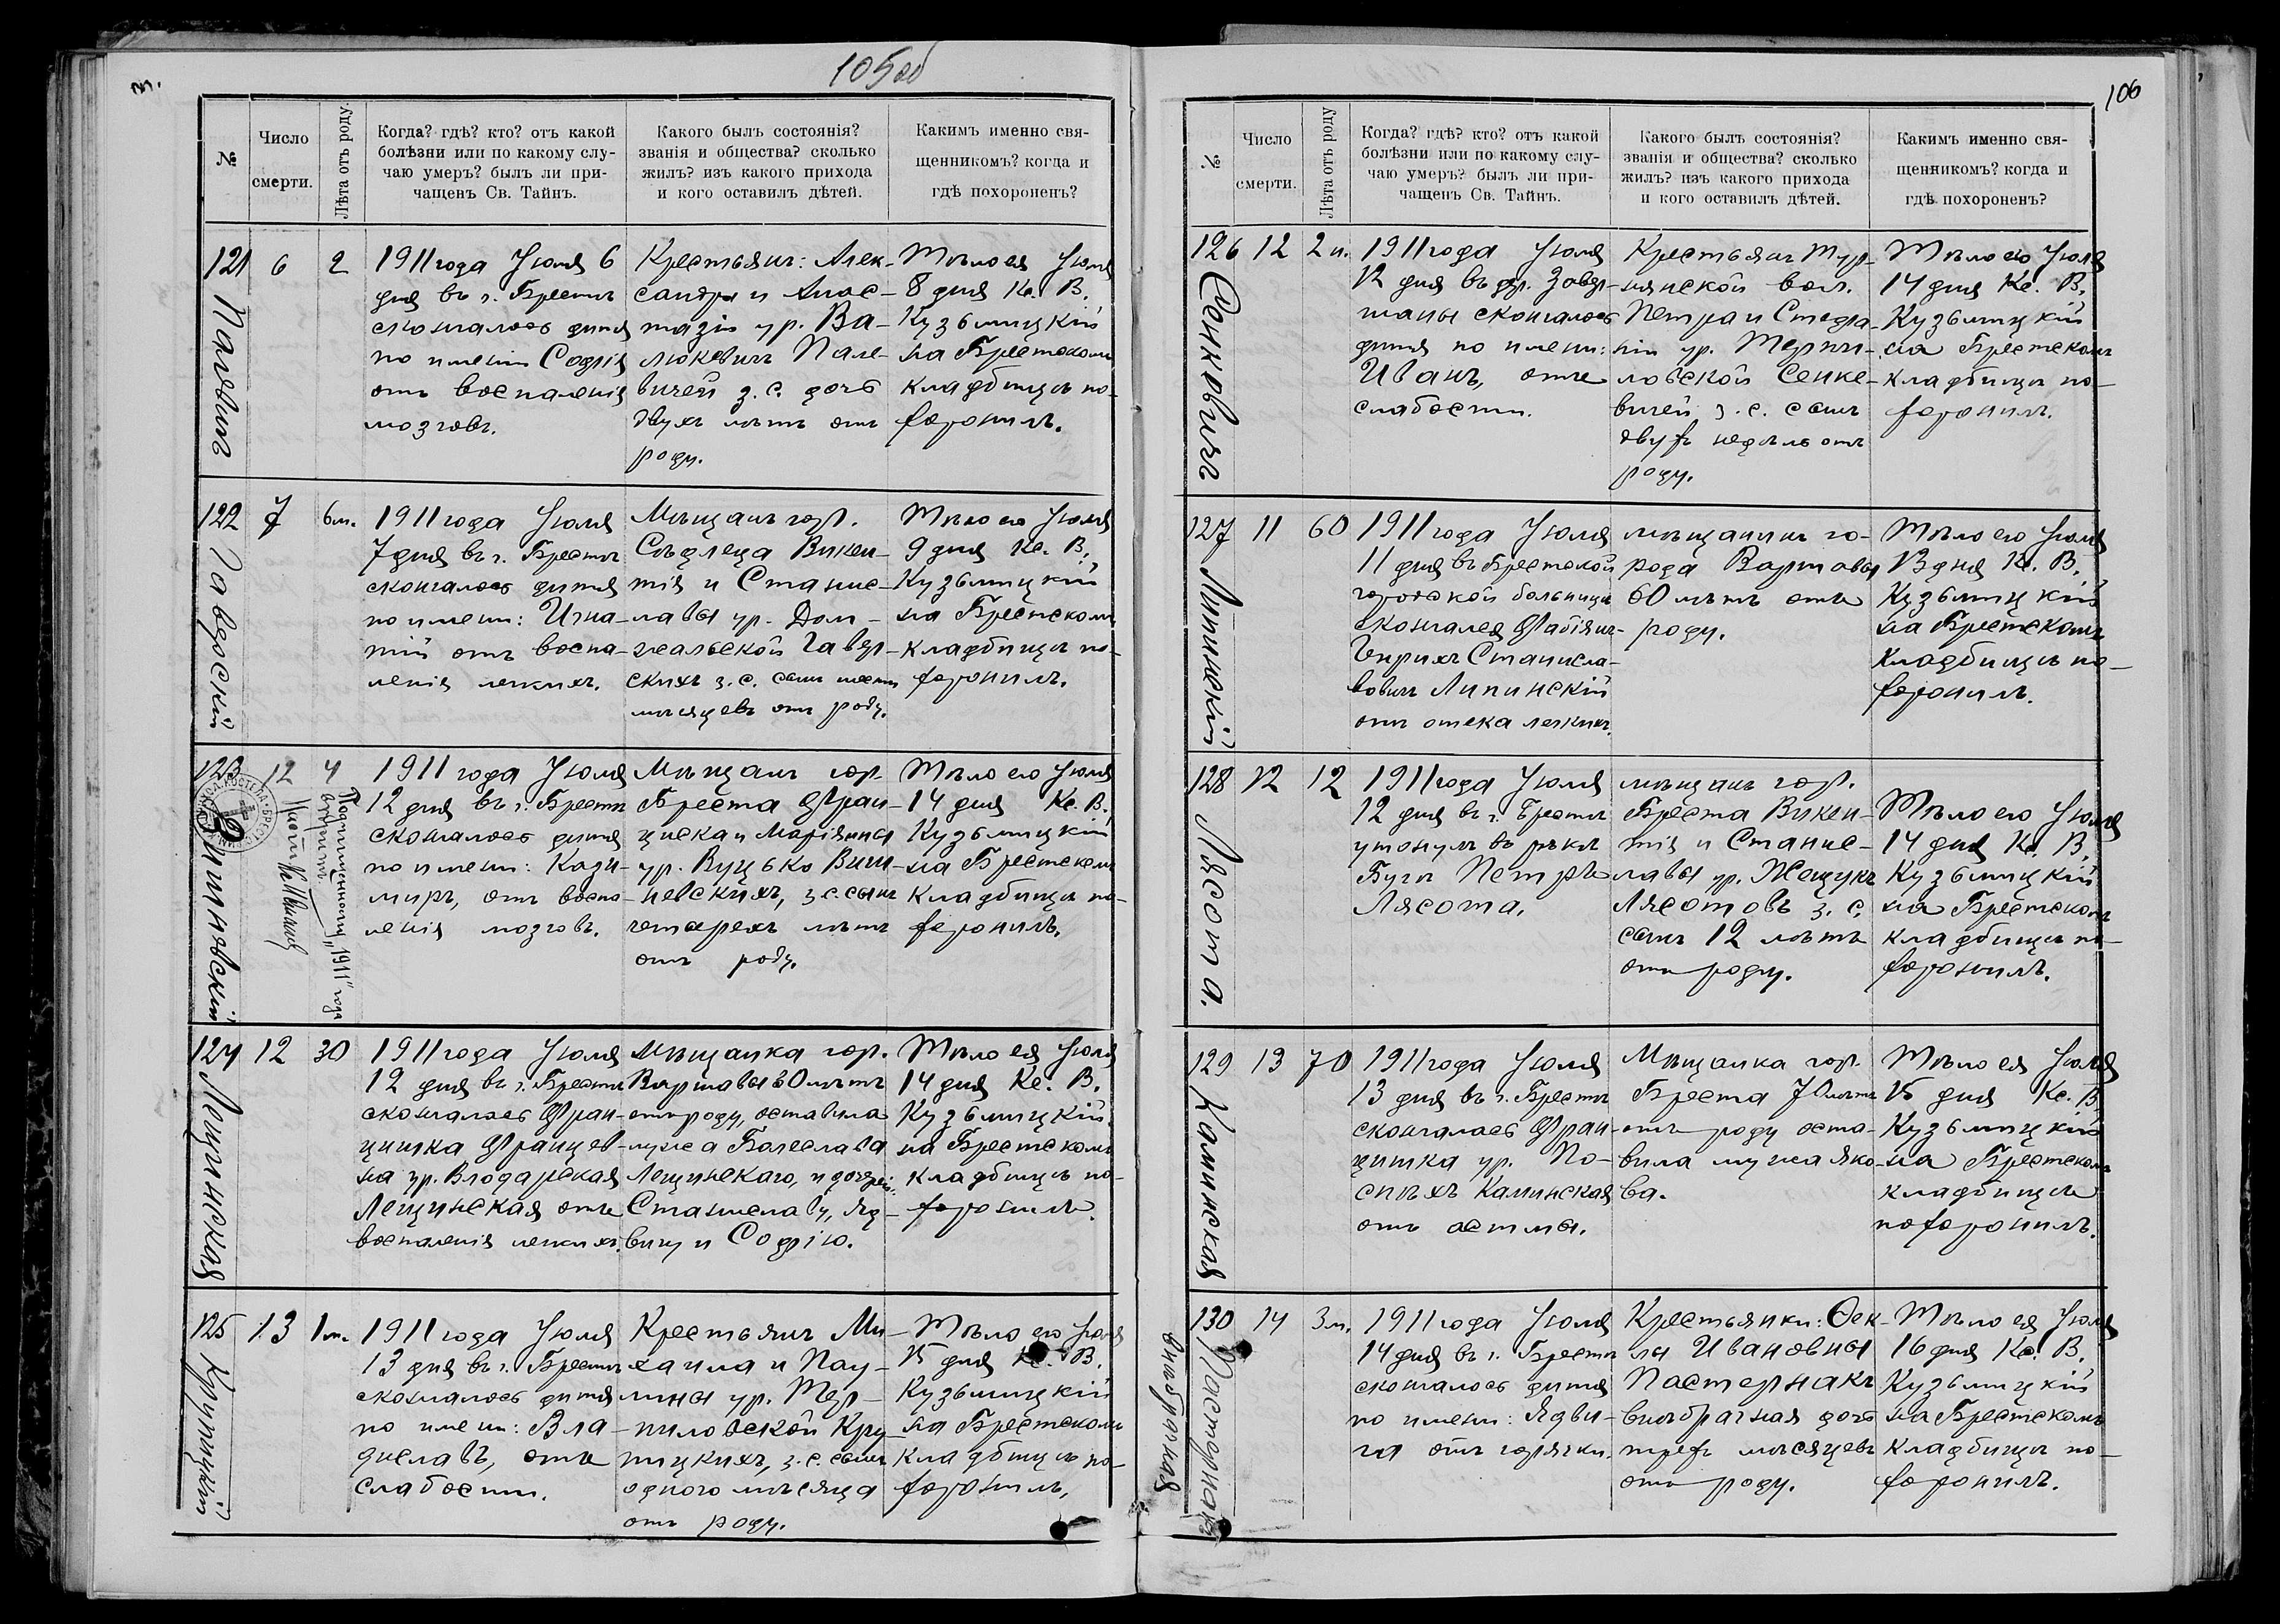 105 об
106
№
Число смерти.
Лѣта отъ роду.
Когда? гдѣ? кто? отъ какой
болѣзни или по какому слу-
чаю умеръ? былъ ли при-
чащенъ Св. Тайнъ.
Какого былъ состоянія?
званія и общества? сколько
жилъ? изъ какого прихода
и кого оставилъ дѣтей.
Какимъ именно свя-
щенникомъ? когда и
гдѣ похороненъ?
121
6
2
1911 года Іюля 6
дня въ г. Брестѣ
скончалось дитя
по имени Софія
отъ воспаленія
мозговъ.
Крестьянъ: Алек-
сандра и Анас-
тазіи ур. Ва-
люкевичъ Пале-
вичей з. с. дочь
двухъ лѣтъ отъ
роду.
Тѣло ея Іюля
8 дня Кс. В.
Кузьмицкій
на Брестскомъ
кладбищѣ по-
хоронилъ.
122
Гавдскій
7
6 м.
1911 года Іюля
7 дня въ г. Брестѣ
скончалось дитя
по имени: Игна-
тій отъ воспа-
ленія легкихъ.
Мѣщанъ гор.
Сѣдлеца Викен-
тія и Станис-
лавы ур. Дом-
жальской Гавд-
скихъ з. с. сынъ шести
мѣсяцевъ отъ роду.
Тѣло его Іюля
9 дня Кс. В.
Кузьмицкій
на Брестскомъ
кладбищѣ по-
хоронилъ.
123
Вишневскій
12
4
1911 года Іюля
12 дня въ г. Брестѣ
скончалось дитя
по имени: Кази-
миръ, отъ воспа-
ленія мозговъ.
Мѣщанъ гор.
Бреста Фран-
циска и Маріянны
ур. Вуцько Виш-
невскихъ, з. с. сынъ
четырехъ лѣтъ
отъ роду.
Тѣло его Іюля
14 дня Кс. В.
Кузьмицкій
на Брестскомъ
кладбищѣ по-
хоронилъ.
124
Лещинская
12
30
1911 года Іюля
12 дня въ г. Брестѣ
скончалась Фран-
цишка Францев-
на ур. Влодарская
Лещинская отъ
воспаленія легкихъ.
Мѣщанка гор.
Варшавы 30 лѣтъ
отъ роду, оставила
мужа Болеслава
Лещинскаго, и дочерей:
Станиславу, Яд-
вигу и Софію.
Тѣло ея Іюля
14 дня Кс. В.
Кузьмицкій
на Брестскомъ
кладбищѣ по-
хоронилъ.
125
Крупицкій
13
1 м.
1911 года Іюля
13 дня въ г. Брестѣ
скончалось дитя
по имени: Вла-
диславъ, отъ
слабости.
Крестьянъ Ми-
хаила и Пау-
лины ур. Тер-
пиловской Кру-
пицкихъ, з. с. сынъ
одного мѣсяца
отъ роду.
Тѣло его Іюля
15 дня Кс. В.
Кузьмицкій
на Брестскомъ
кладбищѣ по-
хоронилъ.
№
Число смерти.
Лѣта отъ роду
Когда? гдѣ? кто? отъ какой
болѣзни или по какому слу-
чаю умеръ? былъ ли при-
чащенъ Св. Тайнъ.
Какого былъ состоянія?
званія и общества? сколько
жилъ? изъ какого прихода
и кого оставилъ дѣтей.
Какимъ именно свя-
щенникомъ? когда и
гдѣ похороненъ?
126
Сенкевичъ
12
2 н.
1911 года Іюля
12 дня въ др.
скончалось
дитя по имени:
Иванъ, отъ
слабости.
Крестьянъ Тур-
нянской вол.
Петра и Стефа-
ніи ур. Терпи-
ловской Сенке-
вичей з. с. сынъ
двухъ недѣль отъ
роду.
Тѣло его Іюля
14 дня Кс. В.
Кузьмицкій
на Брестскомъ
кладбищѣ по-
хоронилъ.
127
Липинскій
11
60
1911 года Іюля
11 дня въ Брестской
городской больницѣ
скончался Фабіянъ-
Генрихъ Станисла-
вовичъ Липинскій
отъ отека легкихъ.
мѣщанинъ го-
рода Варшавы
60 лѣтъ отъ
роду.
Тѣло его Іюля
13 дня Кс. В.
Кузьмицкій
на Брестскомъ
кладбищѣ по-
хоронилъ.
128
Лясота.
12
12
1911 года Іюля
12 дня въ г. Брестѣ
утонулъ въ рѣкѣ
Бугѣ Петръ
Лясота.
мѣщанъ гор.
Бреста Викен-
тія и Станис-
лавы ур. Жещукъ
Лясотовъ з. с.
сынъ 12 лѣтъ
отъ роду.
Тѣло его Іюля
14 дня Кс. В.
Кузьмицкій
на Брестскомъ
кладбищѣ по-
хоронилъ.
129
Каминская
13
70
1911 года Іюля
13 дня въ г. Брестѣ
скончалась Фран-
цишка ур. По-
спѣхъ Каминская
отъ астмы.
Мѣщанка гор.
Бреста 70 лѣтъ
отъ роду оста-
вила мужа Яко-
ва.
Тѣло ея Іюля
15 дня Кс. В.
Кузьмицкій
на Брестскомъ
кладбищѣ
похоронилъ.
130
Пастернакъ
внѣбрачная
14
3 м.
1911 года Іюля
14 дня въ г. Брестѣ
скончалось дитя
по имени: Ядви-
га отъ горячки.
Крестьянки: Ѳек-
лы Ивановны
Пастернакъ
внѣбрачная дочь
трехъ мѣсяцевъ
отъ роду.
Тѣло ея Іюля
16 дня Кс. В.
Кузьмицкій
на Брестскомъ
кладбищѣ по-
хоронилъ.